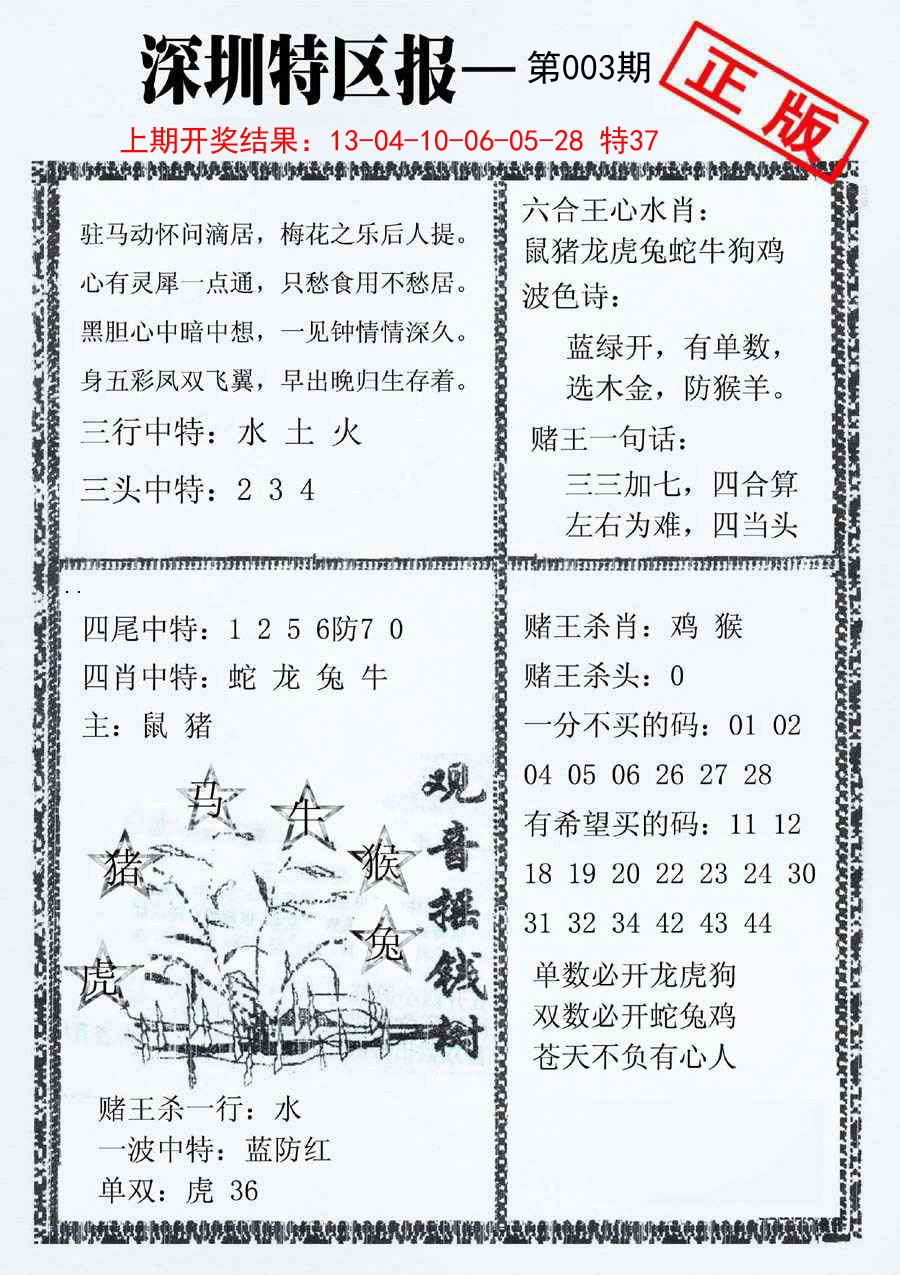 深圳特区报—第003期
正版
上期开奖结果：13-04-10-06-05-28 特37
驻马动怀问滴居，梅花之乐后人提。
心有灵犀一点通，只愁食用不愁居。
黑胆心中暗中想，一见钟情情深久。
身五彩凤双飞翼，早出晚归生存着。
三行中特：水 土 火
三头中特：2 3 4
六合王心水肖：
鼠猪龙虎兔蛇牛狗鸡
波色诗：
蓝绿开，有单数，
选木金，防猴羊。
赌王一句话：
三三加七，四合算
左右为难，四当头
四尾中特：1 2 5 6防7 0
四肖中特：蛇 龙 兔 牛
主：鼠 猪
马
牛
猪
猴
兔
虎
观音摇钱树
赌王杀一行：水
一波中特：蓝防红
单双：虎 36
赌王杀肖：鸡 猴
赌王杀头：0
一分不买的码：01 02
04 05 06 26 27 28
有希望买的码：11 12
18 19 20 22 23 24 30
31 32 34 42 43 44
单数必开龙虎狗
双数必开蛇兔鸡
苍天不负有心人